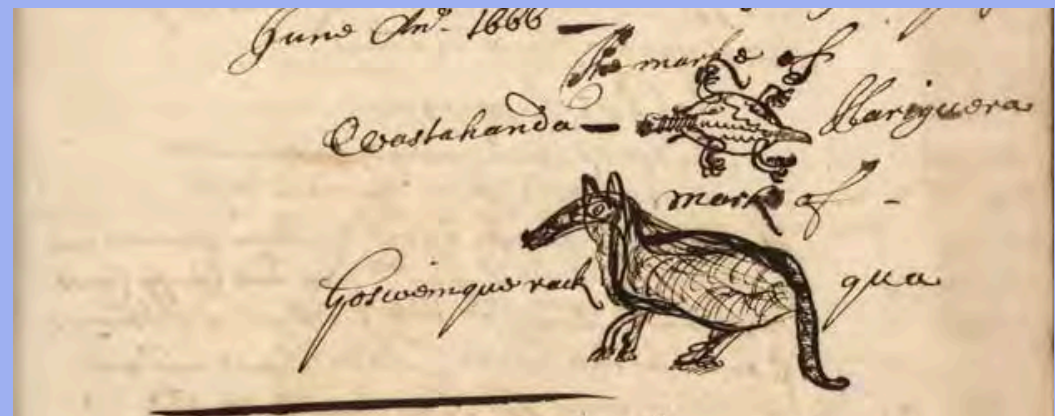 June An°. 1666
The marke of
Wastahanda Hariguera
mark of -
Goswemquerack qua